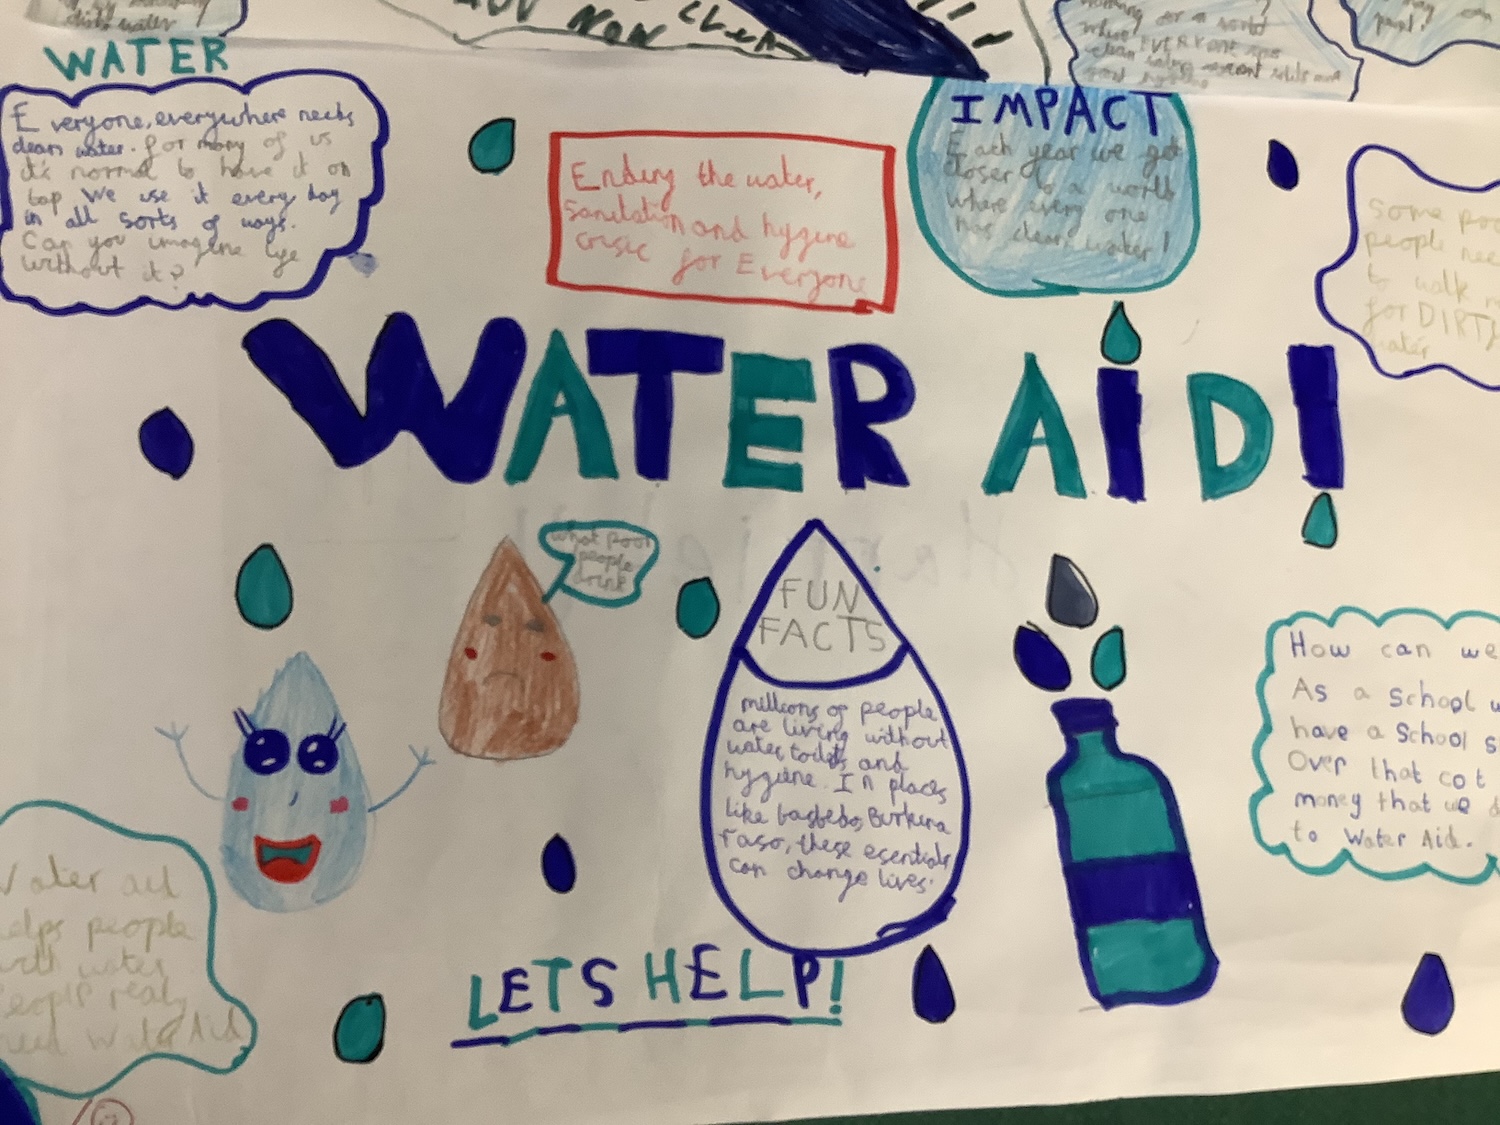 dirty water
NOW
clean
EVERYONE has
clean water, decent toilets and
good hygiene
WATER
Everyone, everywhere needs
clean water. for many of us
it's normal to have it on
tap We use it every day
in all sorts of ways.
Can you imagine lige
without it?
Ending the water,
Sanitation and hygiene
crisic for Everyone
IMPACT
Each year we get
closer to a world
where every one
has clean water!
Some poo
people nee
to walk
for DIRTY
water
WATER AiD!
what poor
people
drink
FUN
FACTS
millions of people
are living without
water toilets and
hygiene. In places
like Burkina
Faso, these esentials
can change lives.
How can we
As a school
have a School
Over that cot
money that we
to Water Aid.
Water aid
elps people
with water
People realy
need Water Aid
LETS HELP!